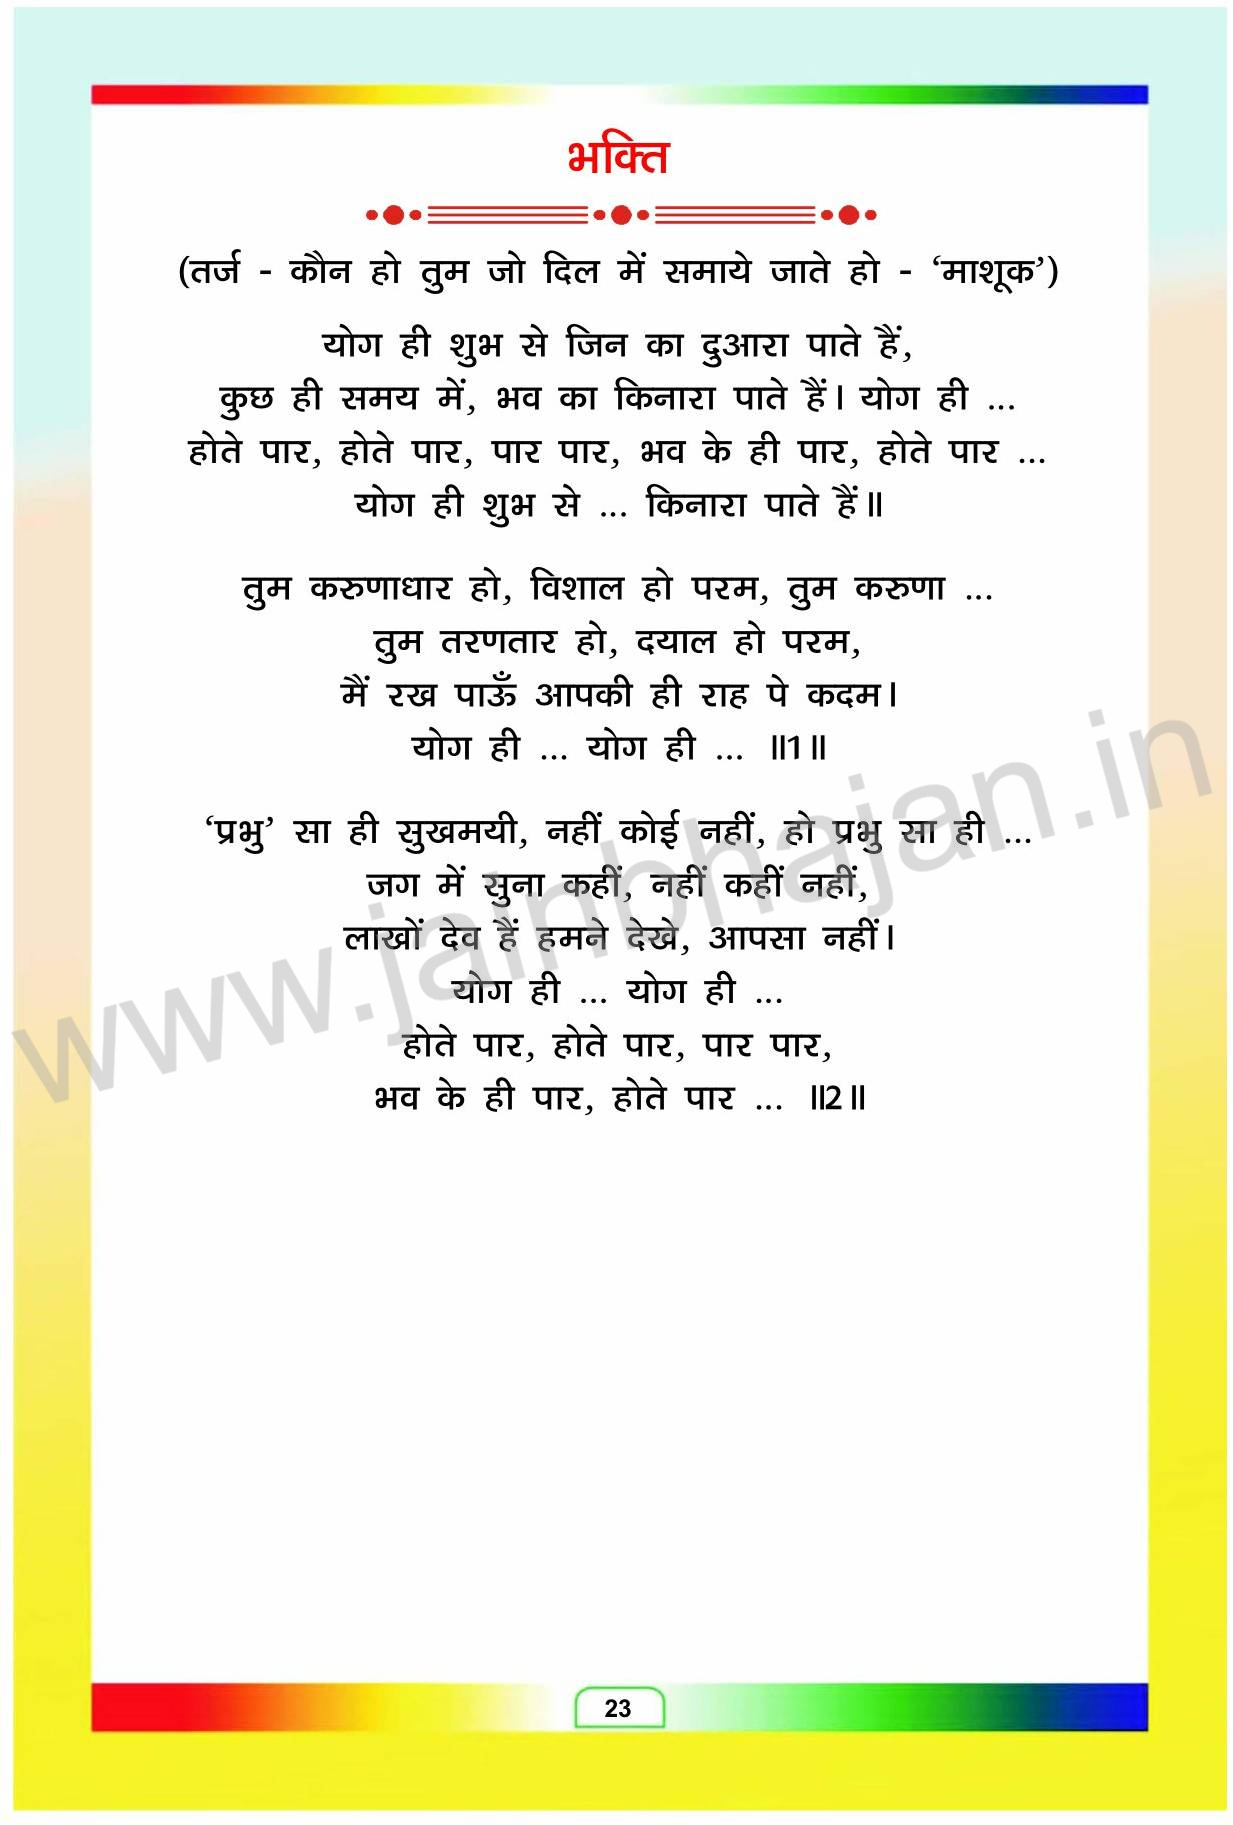 भक्ति
(तर्ज - कौन हो तुम जो दिल में समाये जाते हो - ‘माशूक’)
योग ही शुभ से जिन का दुआरा पाते हैं,
कुछ ही समय में, भव का किनारा पाते हैं। योग ही ...
होते पार, होते पार, पार पार, भव के ही पार, होते पार ...
योग ही शुभ से ... किनारा पाते हैं॥
तुम करुणाधार हो, विशाल हो परम, तुम करुणा ...
तुम तरणतार हो, दयाल हो परम,
मैं रख पाऊँ आपकी ही राह पे कदम।
योग ही ... योग ही ... ॥1॥
‘प्रभु’ सा ही सुखमयी, नहीं कोई नहीं, हो प्रभु सा ही ...
जग में सुना कहीं, नहीं कहीं नहीं,
लाखों देव हैं हमने देखे, आपसा नहीं।
योग ही ... योग ही ...
होते पार, होते पार, पार पार,
भव के ही पार, होते पार ... ॥2॥
www.jainbhajan.in
23